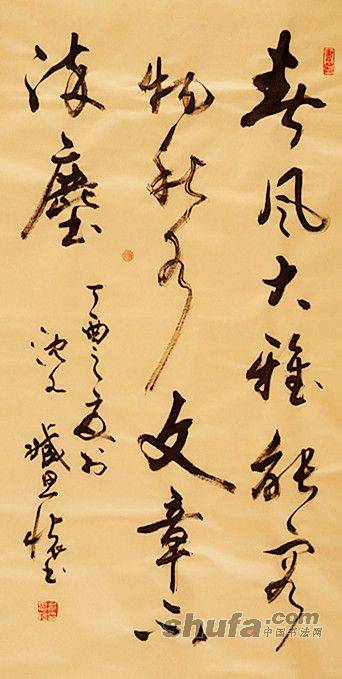 春风大雅能容
物秋水文章不
染塵
丁酉之夏於
臧思
shufa.com
中国书法网